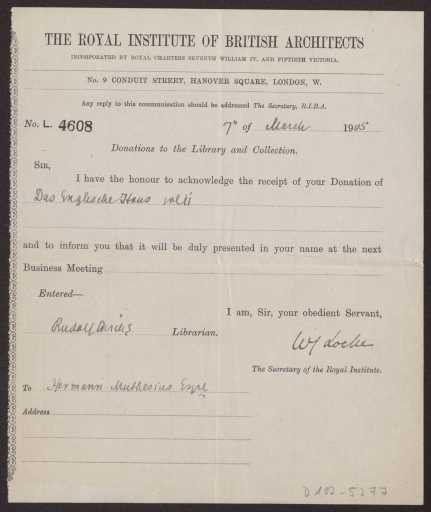 THE ROYAL INSTITUTE OF BRITISH ARCHITECTS
INCORPORATED BY ROYAL CHARTERS SEVENTH WILLIAM IV. AND FIFTIETH VICTORIA.
No. 9 CONDUIT STREET, HANOVER SQUARE, LONDON, W.
Any reply to this communication should be addressed The Secretary, R.I.B.A.
No. L. 4608 7th of March 1905
Donations to the Library and Collection.
SIR,
I have the honour to acknowledge the receipt of your Donation of
Das Englische Haus vol ii
and to inform you that it will be duly presented in your name at the next
Business Meeting
Entered—
I am, Sir, your obedient Servant,
Rudolf Dircks Librarian.
WJ Locke
The Secretary of the Royal Institute.
To Hermann Muthesius Esqre
Address
D 102-5277